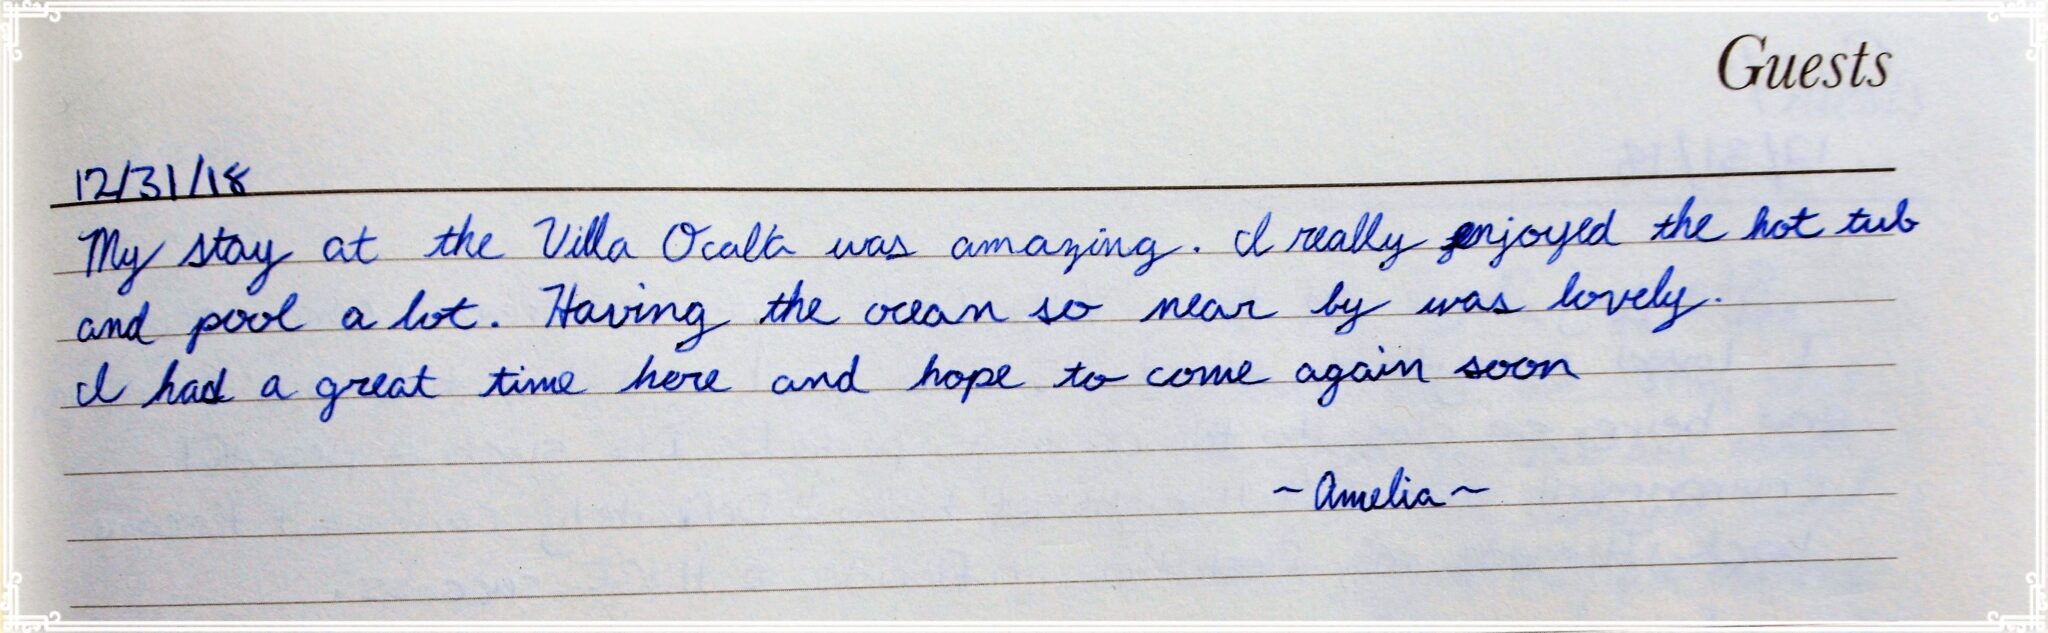 Guests
12/31/18
My stay at the Villa Ocalta was amazing. I really enjoyed the hot tub
and pool a lot. Having the ocean so near by was lovely.
I had a great time here and hope to come again soon
~Amelia~